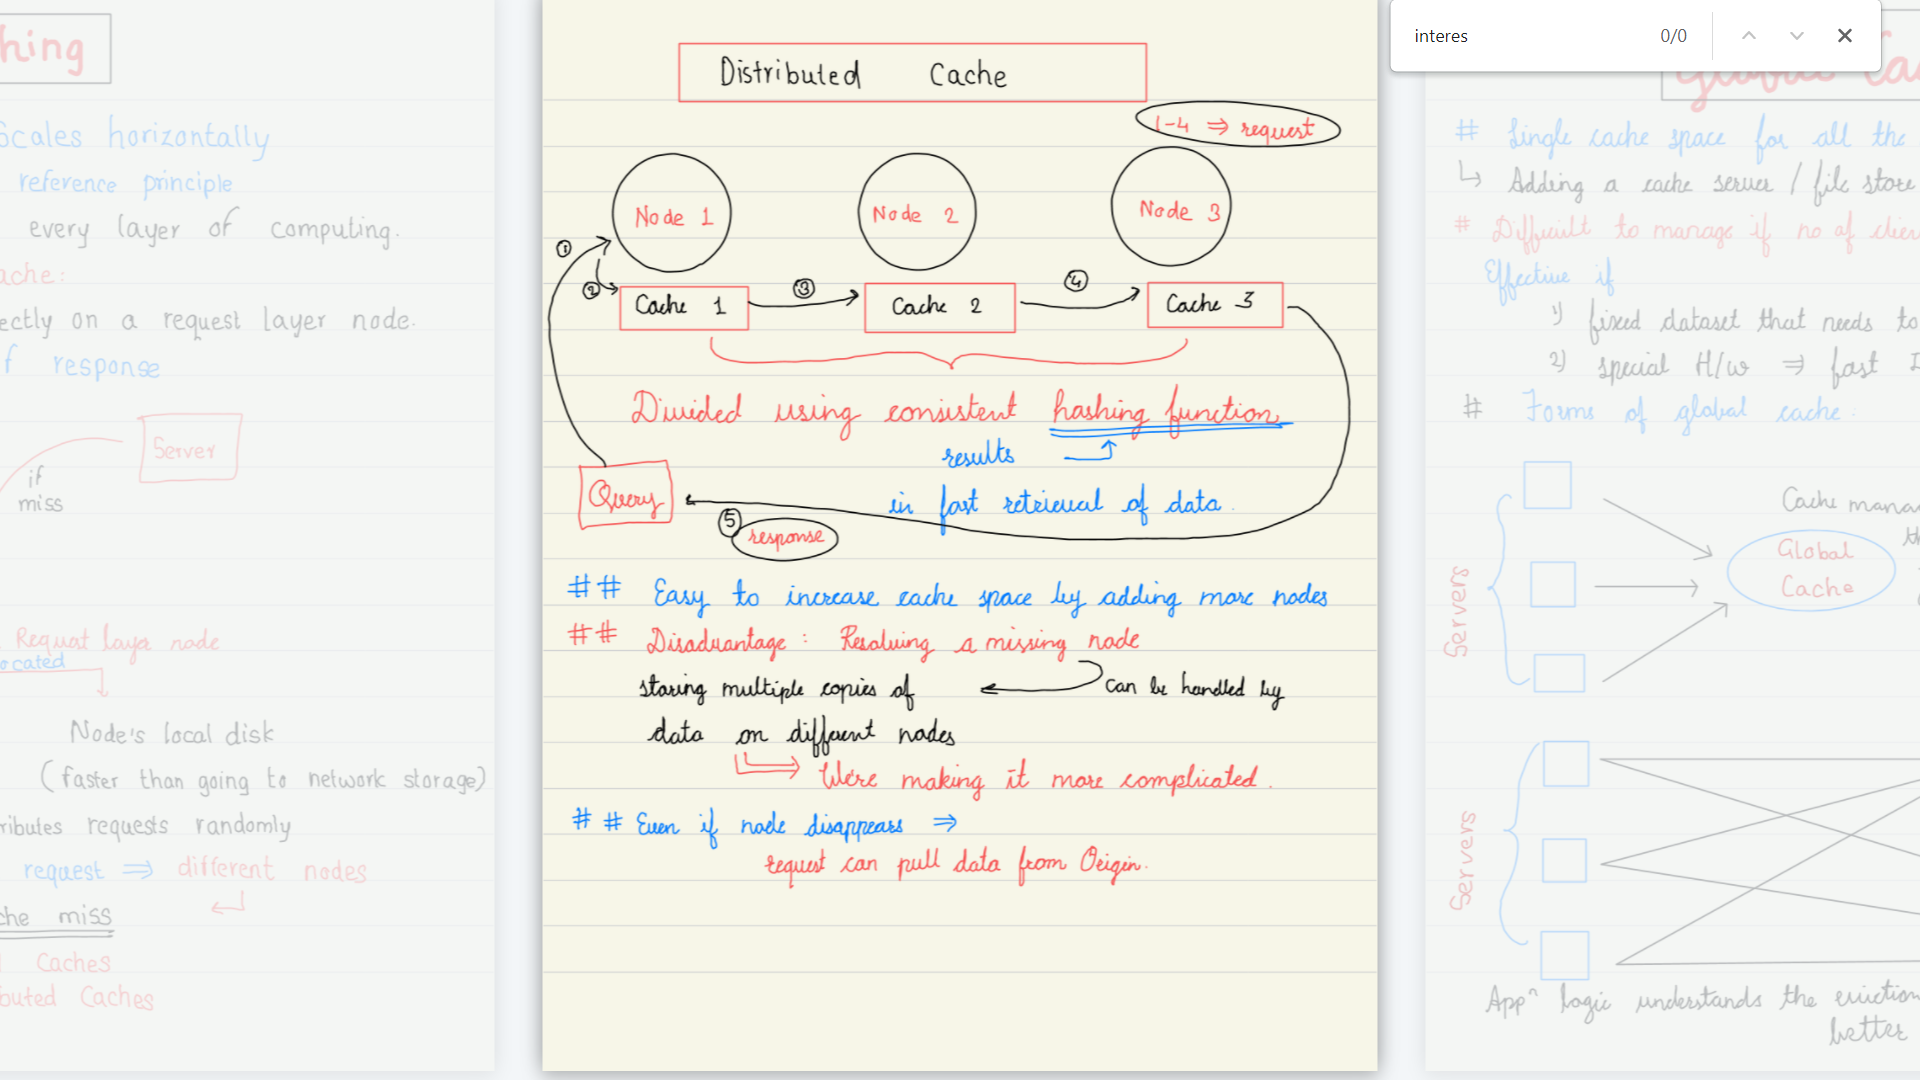 interes
0/0
hing
Scales horizontally
reference principle
every layer of computing.
ache:
ectly on a request layer node.
f response
Server
if
miss
Request laye node
ocated
Node's local disk
(faster than going to network storage)
ributes requests randomly
request ⇒ different nodes
che miss
Caches
buted Caches
Distributed Cache
1-4 ⇒ request
Node 1
Node 2
Node 3
①
②
③
④
Cache 1
Cache 2
Cache 3
Divided using consistent hashing function
results
in fast retrieval of data.
Query
⑤
response
## Easy to increase cache space by adding more nodes
## Disadvantage: Resolving a missing node
can be handled by
storing multiple copies of
data on different nodes
⇒ We're making it more complicated.
## Even if node disappears ⇒
request can pull data from Origin.
Global Ca
# Single cache space for all the
↳ Adding a cache server / file store
# Difficult to manage if no of clien
Effective if
1) fixed dataset that needs to
2) special H/w ⇒ fast I
# Forms of global cache.
Cache mana
th
Global
Cache
Servers
Servers
Appⁿ logic understands the eviction
better